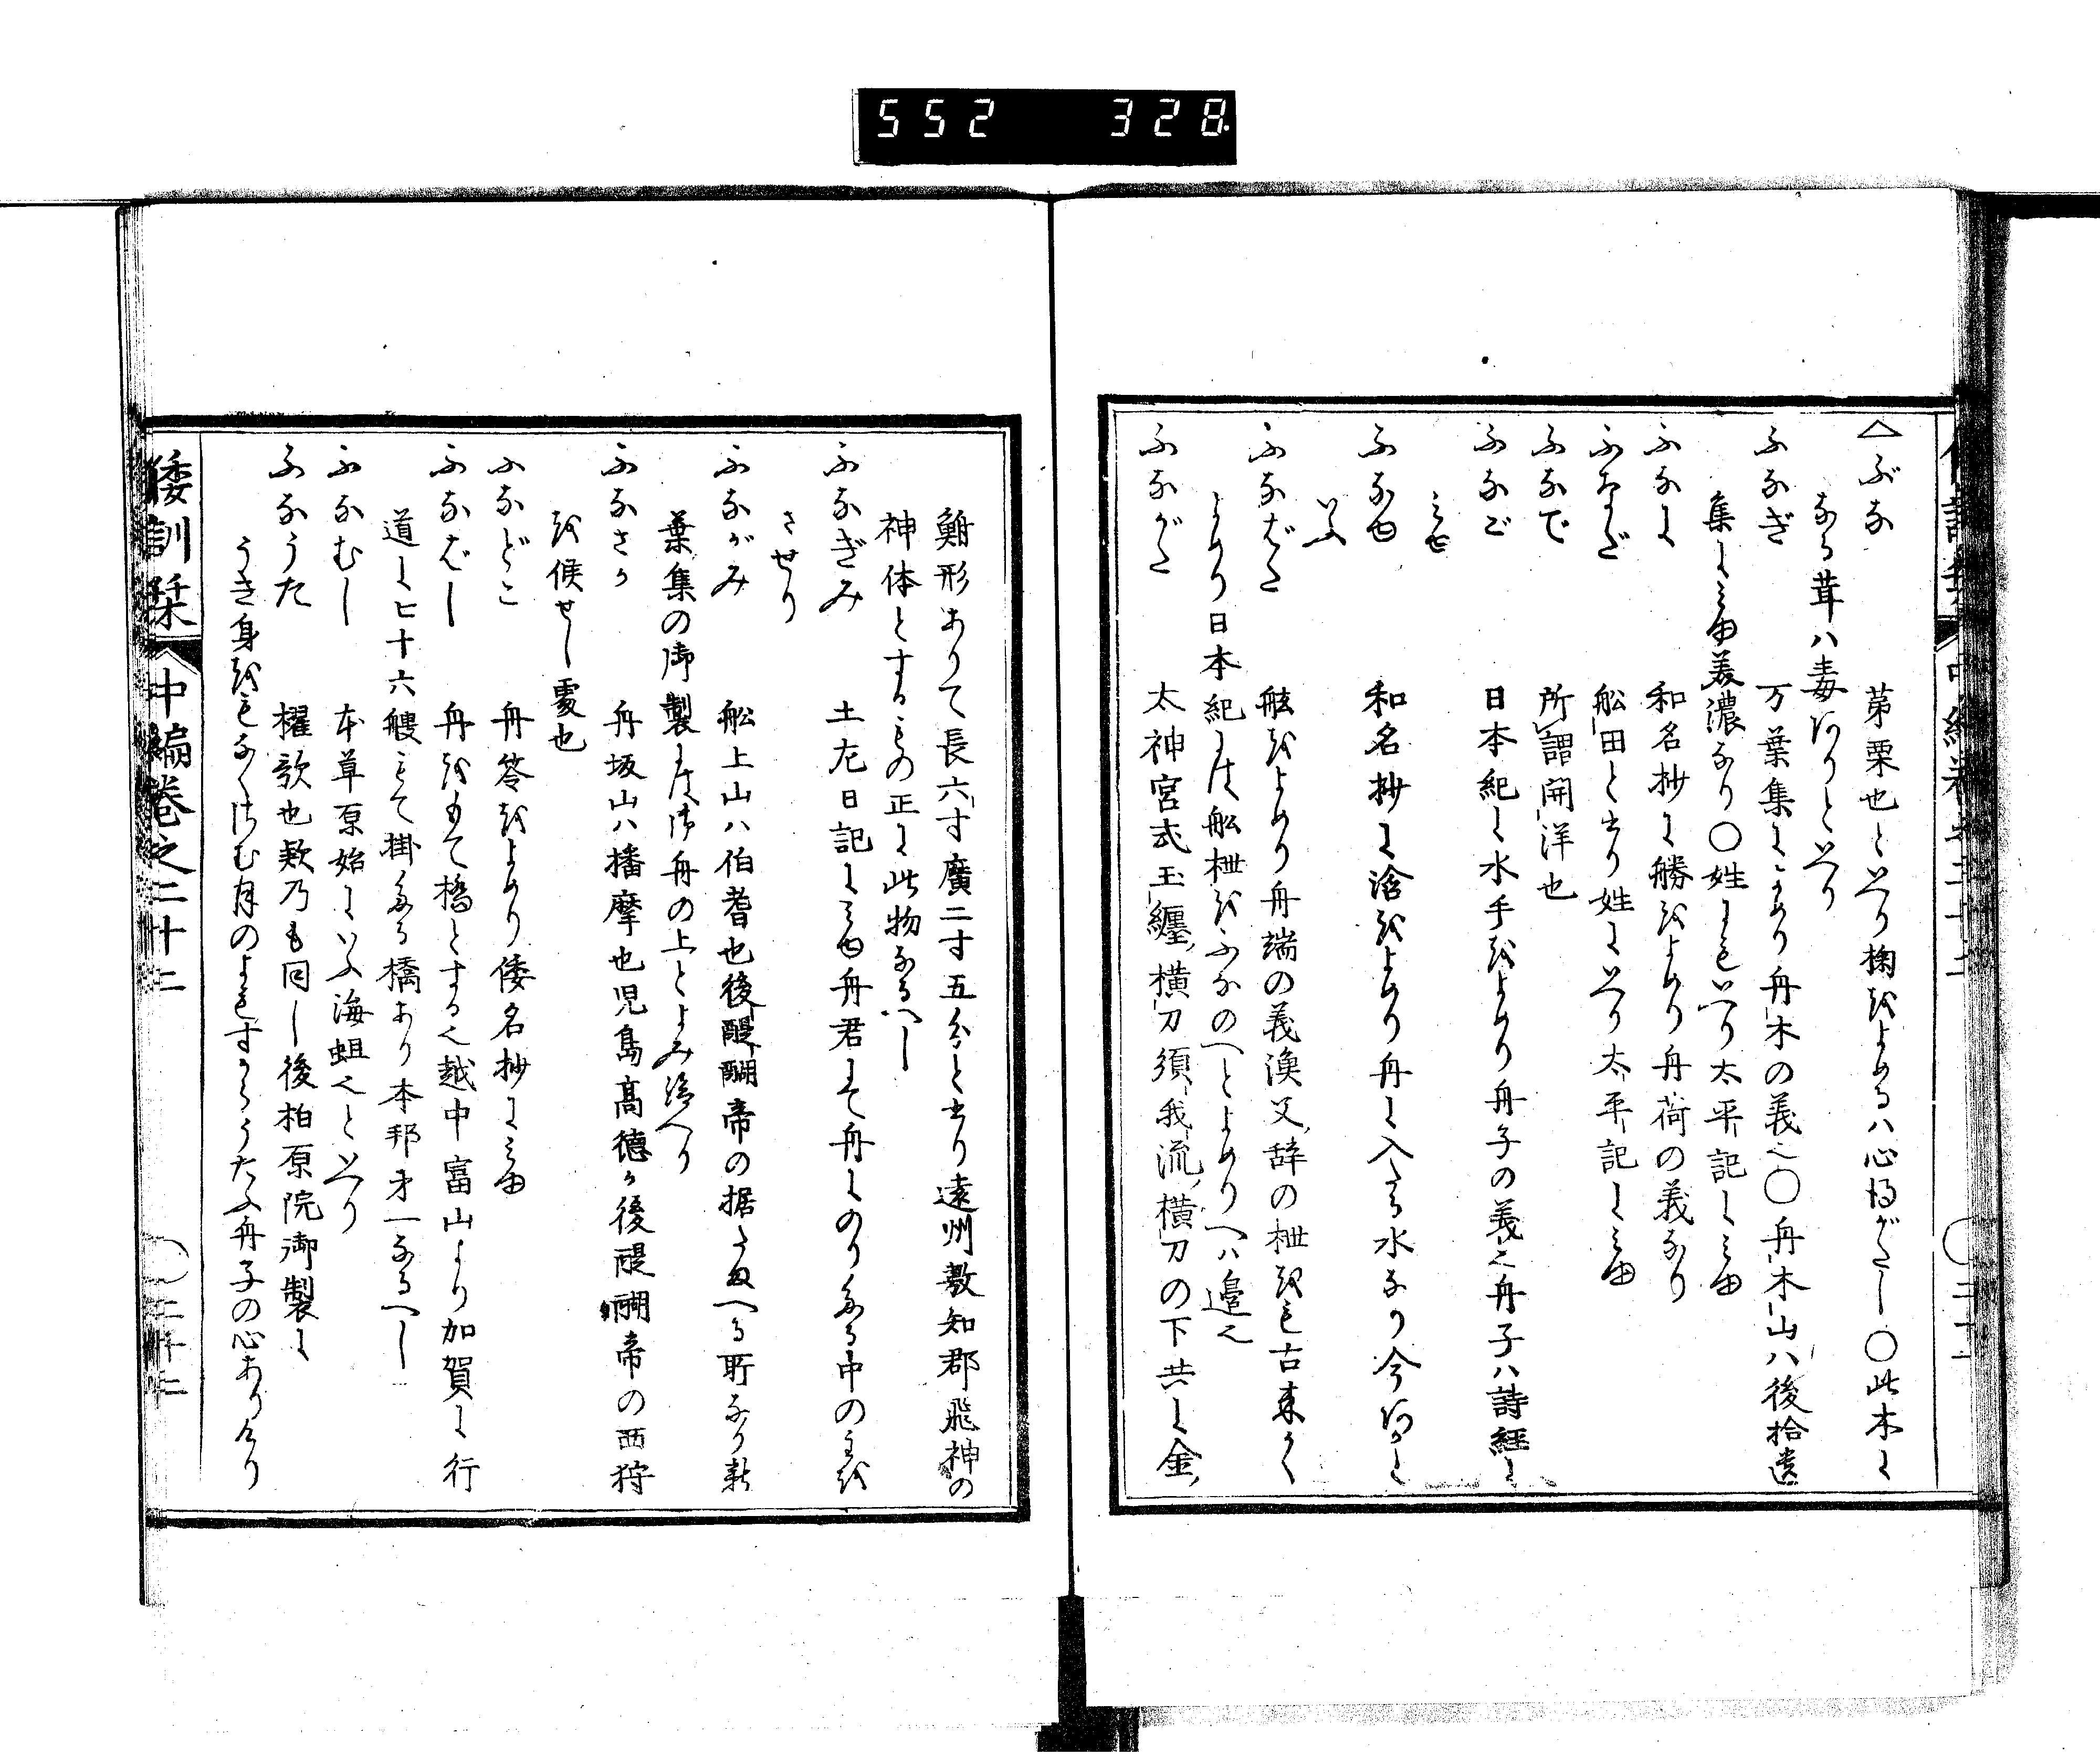 552 328
△ぶな 苐栗也といへり椈をよめるハ心得がたし〇此木に
なる茸ハ毒ありといへり
ふなぎ 万葉集によめり舟木の義也〇舟木山ハ後拾遺
集に見ゆ美濃なり〇姓にもいへり太平記に見ゆ
ふなに 和名抄に艕をよめり舟荷の義なり
ふなだ 船田と書り姓にいへり太平記に見ゆ
ふなで 所謂開洋也
ふなこ 日本紀に水手をよめり舟子の義也舟子ハ詩経に
見ゆ
ふなゆ 和名抄に淦をよめり舟に入たる水なり今あかと
いふ
ふなばた 舷をよめり舟端の義漁父辞の枻をも古来かく
よめり日本紀には船枻をふなのへとよめりへハ邉也
ふながた 太神宮式玉纏横刀須我流横刀の下共に金
鮒形ありて長六寸廣二寸五分と書り遠州敷知郡飛神の
神体とするもの正に此物なるへし
ふなぎみ 土左日記に見ゆ舟君にて舟にのりたる中の主を
させり
ふながみ 船上山ハ伯耆也後醍醐帝の据たまへる所なり新
葉集の御製には御舟の上とよみ給へり
ふなさか 舟坂山ハ播摩也児島高徳か後醍醐帝の西狩
を候せし處也
ふなどこ 舟笭をよめり倭名抄に見ゆ
ふなばし 舟をもて橋とする也越中富山より加賀に行
道に七十六艘にて掛たる橋あり本邦才一なるへし
ふなむし 本草原始にいふ海蛆也といへり
ふなうた 櫂歌也欵乃も同し後柏原院御製に
うき身をもなくさむ月のよもすからうたふ舟子の心ありけり
倭訓栞 中編巻之二十二 〇二十二